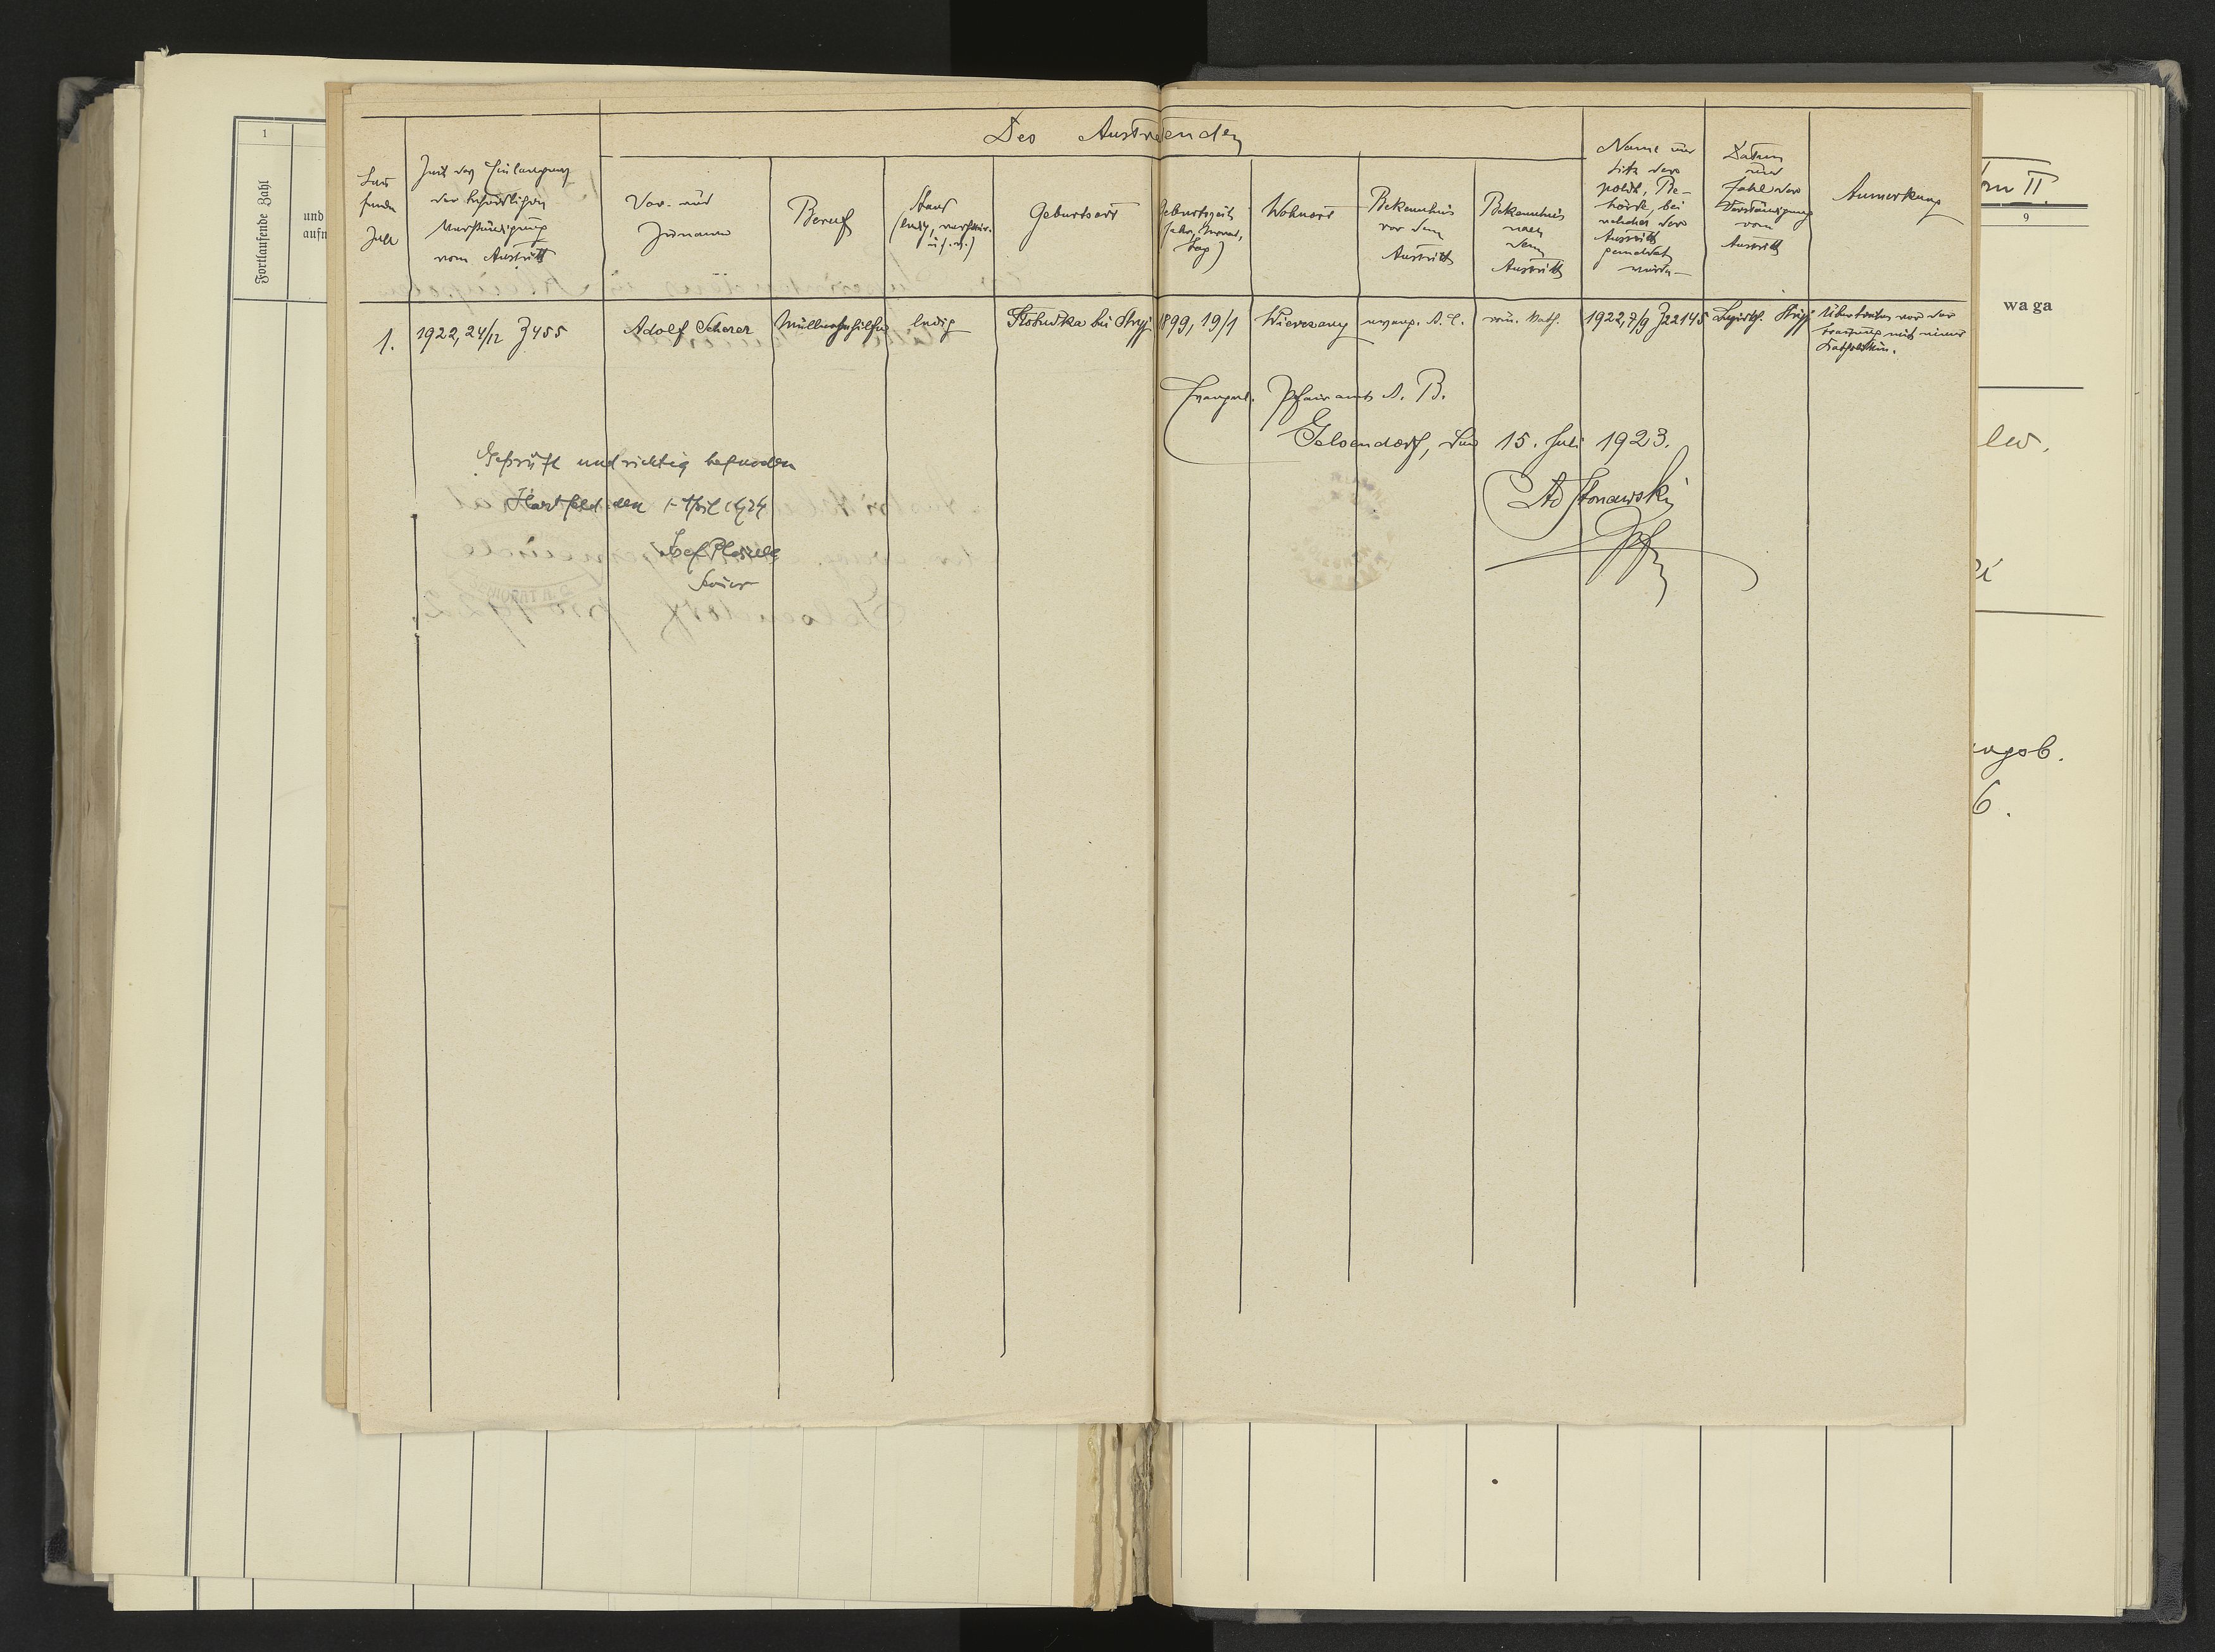 1
Fortlaufende Zahl
und
aufn
Des Austretenden
Lau
fende
Zahl
Zeit des Einlangens
der behördlichen
Verständigung
vom Austritt
Vor- und
Zuname
Beruf
Stand
(ledig, verheir.
u.s.w.)
Geburtsort
Geburtszeit
(Jahr, Monat,
Tag)
Wohnort
Bekenntnis
vor dem
Austritt
Bekenntnis
nach
dem
Austritt
Name und
Sitz der
polit. Be-
hörde, bei
welcher der
Austritt
gemeldet
wurde
Datum
und
Zahl der
Verständigung
vom
Austritt
Anmerkung
1.
1922, 24/12 Z 455
Adolf Scherer
Müllergehilfe
ledig
bei Stryj
1899, 19/1
Wierczany
evang. A. C.
röm. kath.
1922, 7/9 Z 22145
Stryj
Übertreten vor der
Trauung mit einer
Katholikin.
Evangel. Pfarramt A. B.
Gelsendorf, den 15. Juli 1923.
Geprüft und richtig befunden
Hartfeld den 1. April 1924
Josef
Senior
II.
9
waga